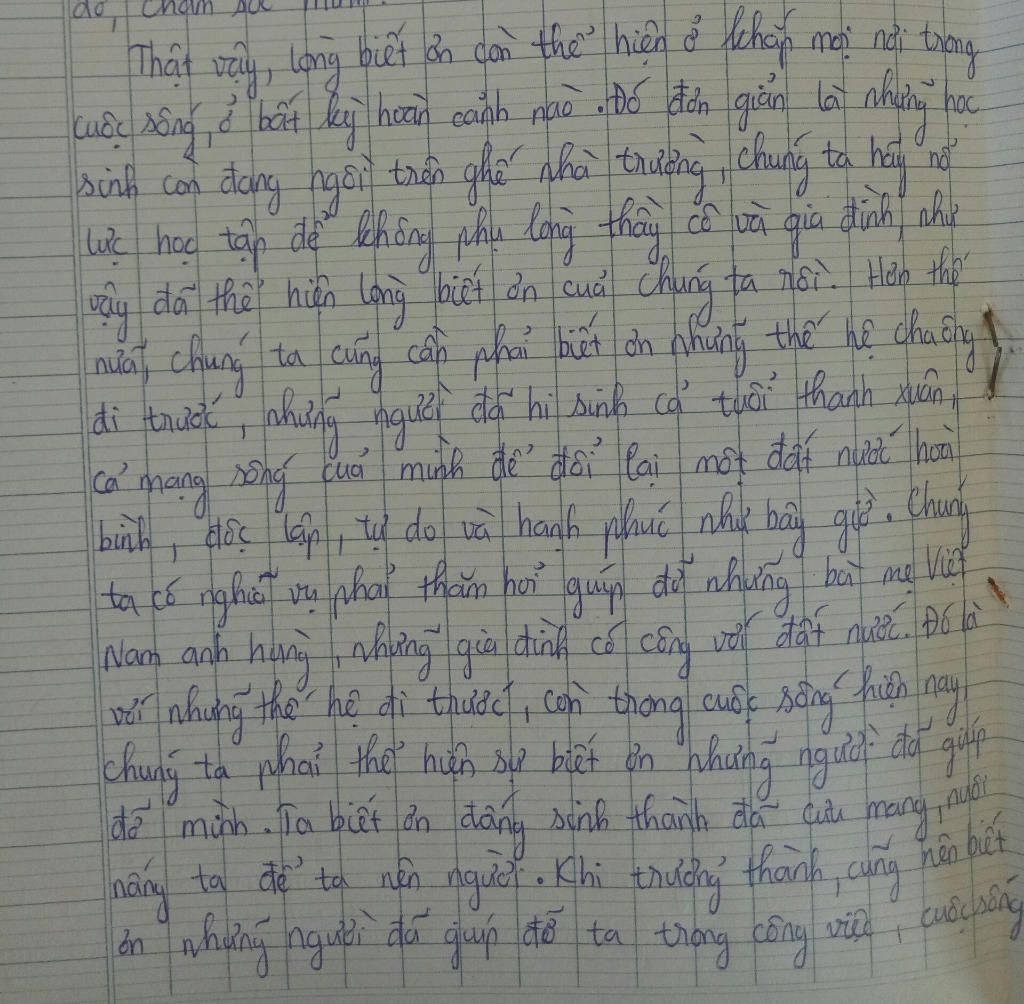 đó, chăm sóc
Thật vậy, lòng biết ơn còn thể hiện ở khắp mọi nơi trong
cuộc sống, ở bất kỳ hoàn cảnh nào. Đó đơn giản là những học
sinh còn đang ngồi trên ghế nhà trường, chúng ta hãy nổ
lực học tập để không phụ lòng thầy cô và gia đình, như
vậy đã thể hiện lòng biết ơn của chúng ta rồi. Hơn thế
nữa, chúng ta cũng cần phải biết ơn những thế hệ cha ông
đi trước, những người đã hi sinh cả tuổi thanh xuân,
cả mạng sống của mình để đổi lại một đất nước hoà
bình, độc lập, tự do và hạnh phúc như bây giờ. Chúng
ta có nghĩa vụ phải thăm hỏi giúp đỡ những bà mẹ Việt
Nam anh hùng, những gia đình có công với đất nước. Đó là
với những thế hệ đi trước, còn trong cuộc sống hiện nay
chúng ta phải thể hiện sự biết ơn những người đã giúp
đỡ mình. Ta biết ơn đấng sinh thành đã cưu mang, nuôi
nấng ta để ta nên người. Khi trưởng thành, cũng nên biết
ơn những người đã giúp đỡ ta trong công việc, cuộc sống